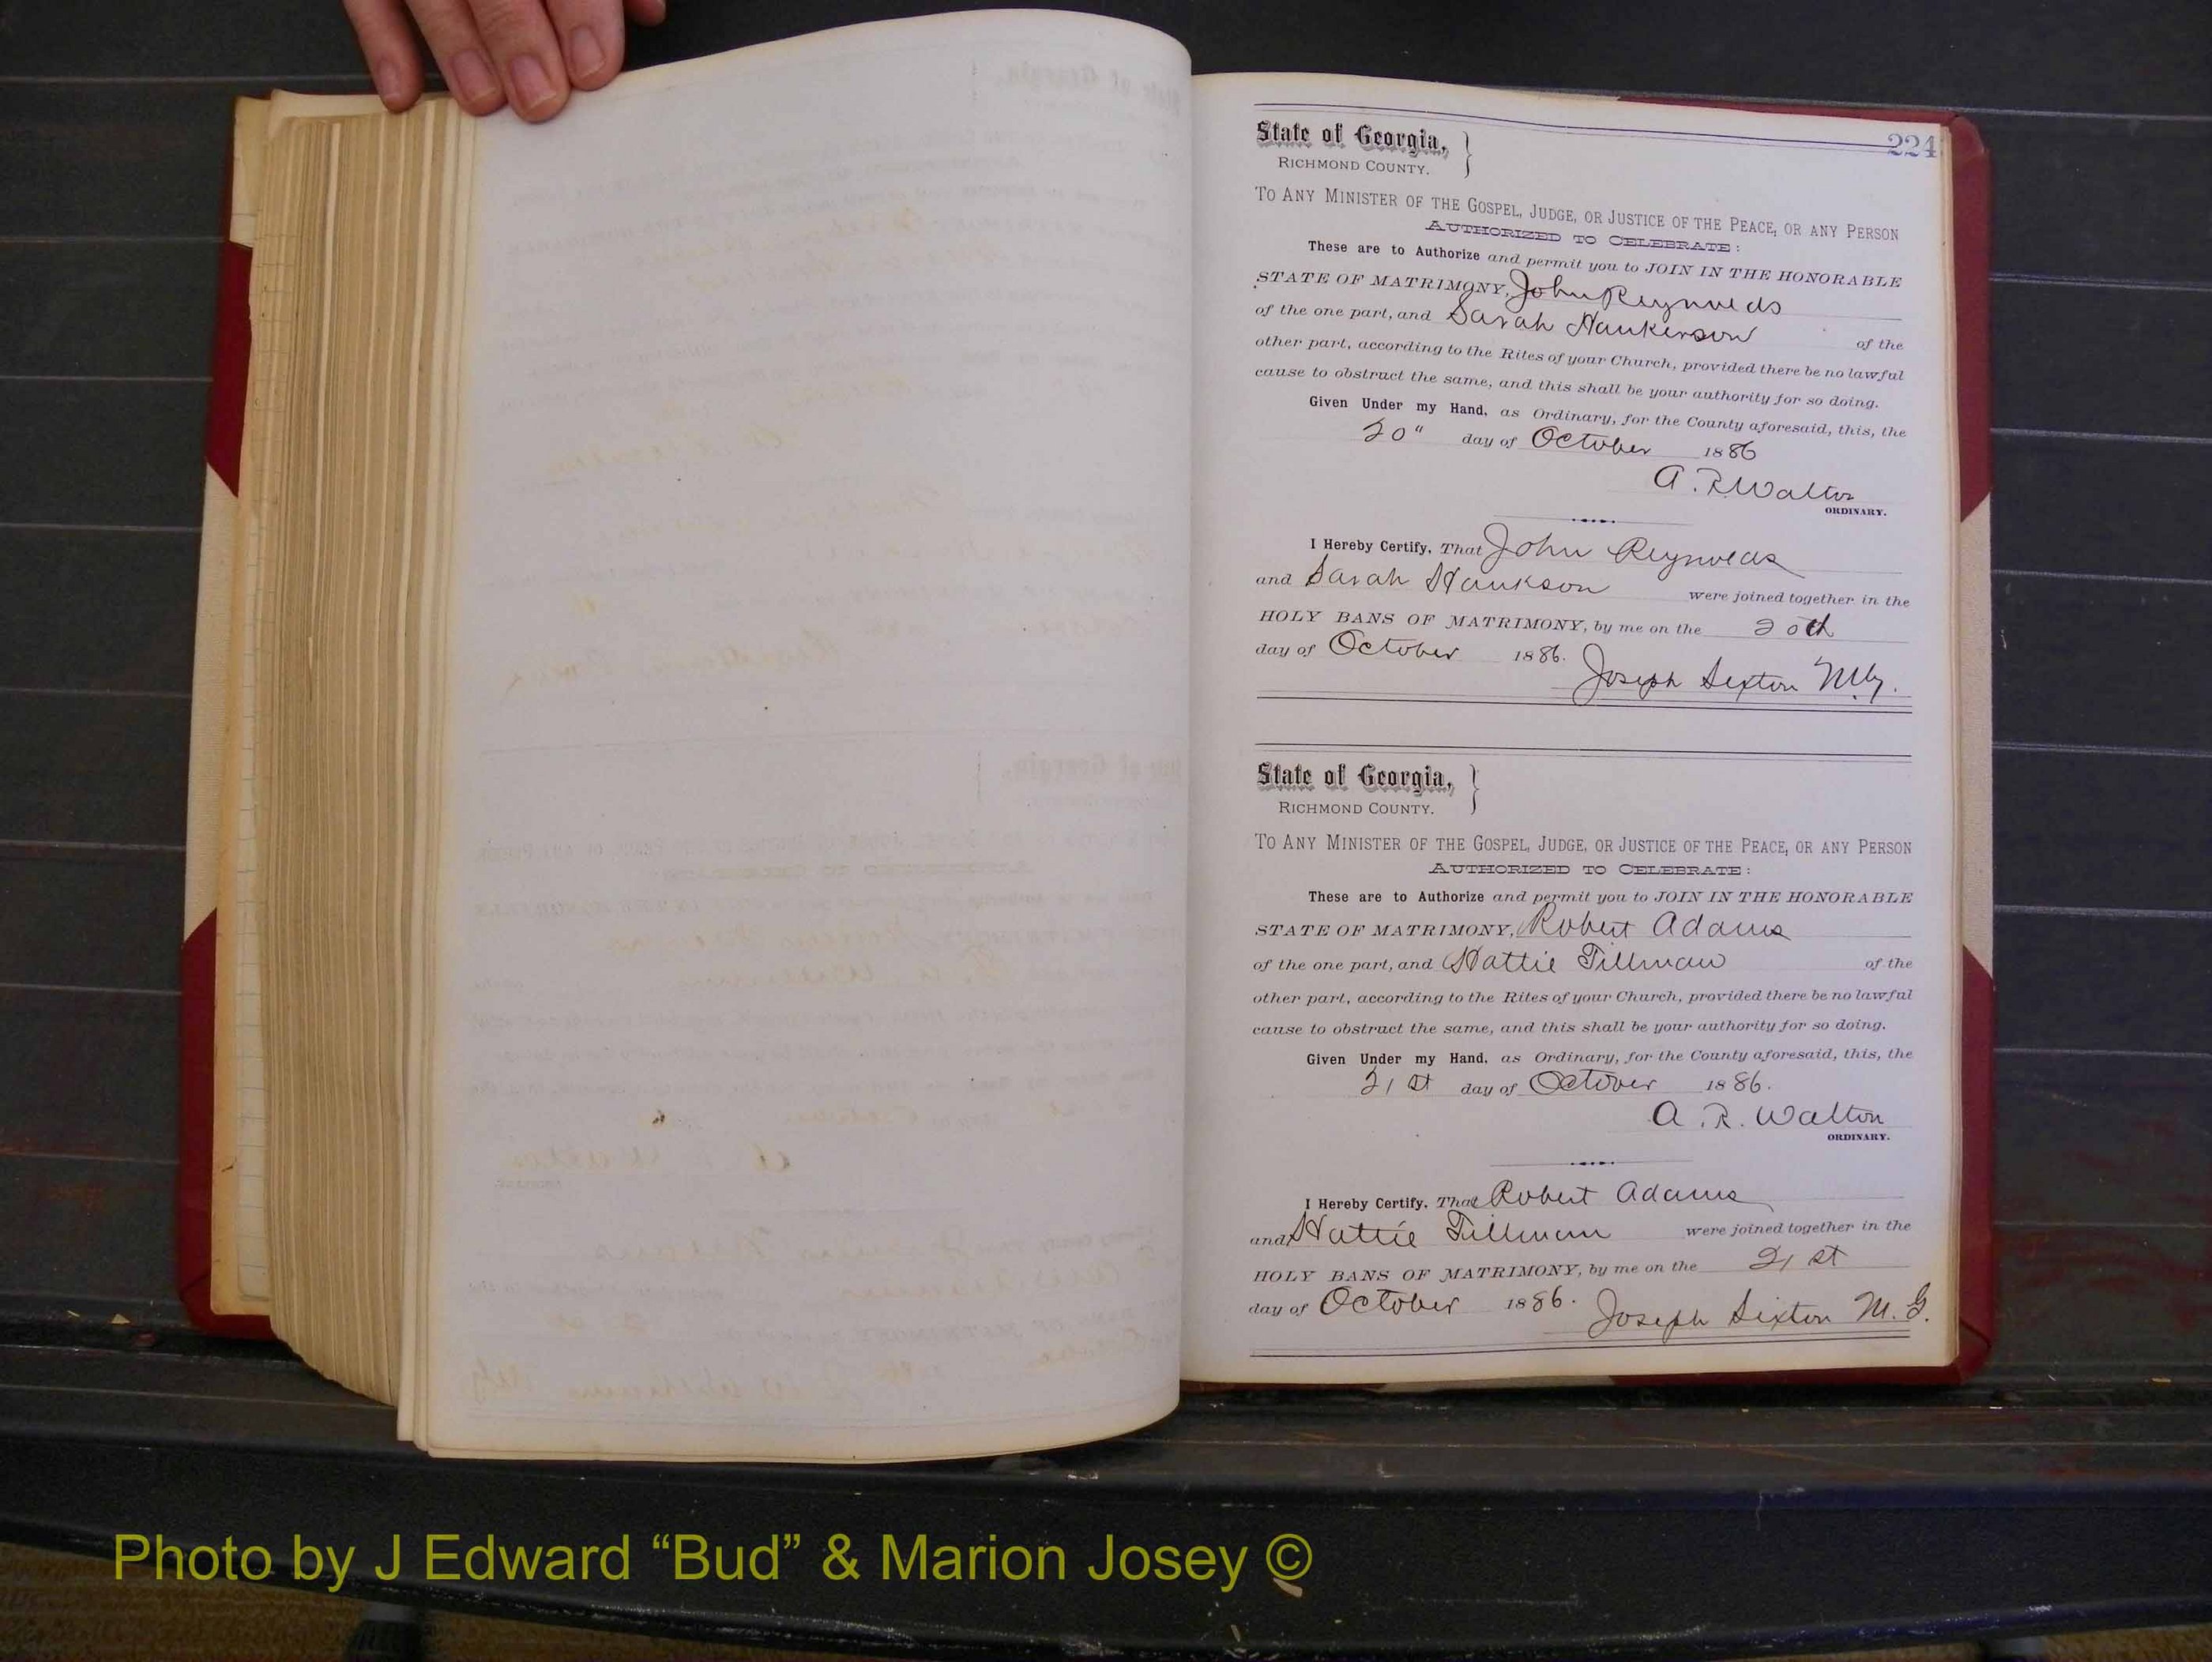 224
State of Georgia, }
RICHMOND COUNTY.
TO ANY MINISTER OF THE GOSPEL, JUDGE, OR JUSTICE OF THE PEACE, OR ANY PERSON
AUTHORIZED TO CELEBRATE:
These are to Authorize and permit you to JOIN IN THE HONORABLE
STATE OF MATRIMONY, John Reynolds
of the one part, and Sarah Hankerson of the
other part, according to the Rites of your Church, provided there be no lawful
cause to obstruct the same, and this shall be your authority for so doing.
Given Under my Hand, as Ordinary, for the County aforesaid, this, the
20" day of October 1886
A. R. Walton
ORDINARY.
I Hereby Certify, That John Reynolds
and Sarah Hankson were joined together in the
HOLY BANS OF MATRIMONY, by me on the 20th
day of October 1886. Joseph Sexton M.G.
State of Georgia, }
RICHMOND COUNTY.
TO ANY MINISTER OF THE GOSPEL, JUDGE, OR JUSTICE OF THE PEACE, OR ANY PERSON
AUTHORIZED TO CELEBRATE:
These are to Authorize and permit you to JOIN IN THE HONORABLE
STATE OF MATRIMONY, Robert Adams
of the one part, and Hattie Tillman of the
other part, according to the Rites of your Church, provided there be no lawful
cause to obstruct the same, and this shall be your authority for so doing.
Given Under my Hand, as Ordinary, for the County aforesaid, this, the
21st day of October 1886.
A. R. Walton
ORDINARY.
I Hereby Certify, That Robert Adams
and Hattie Tillman were joined together in the
HOLY BANS OF MATRIMONY, by me on the 21st
day of October 1886. Joseph Sexton M. G.
Photo by J Edward “Bud” & Marion Josey ©